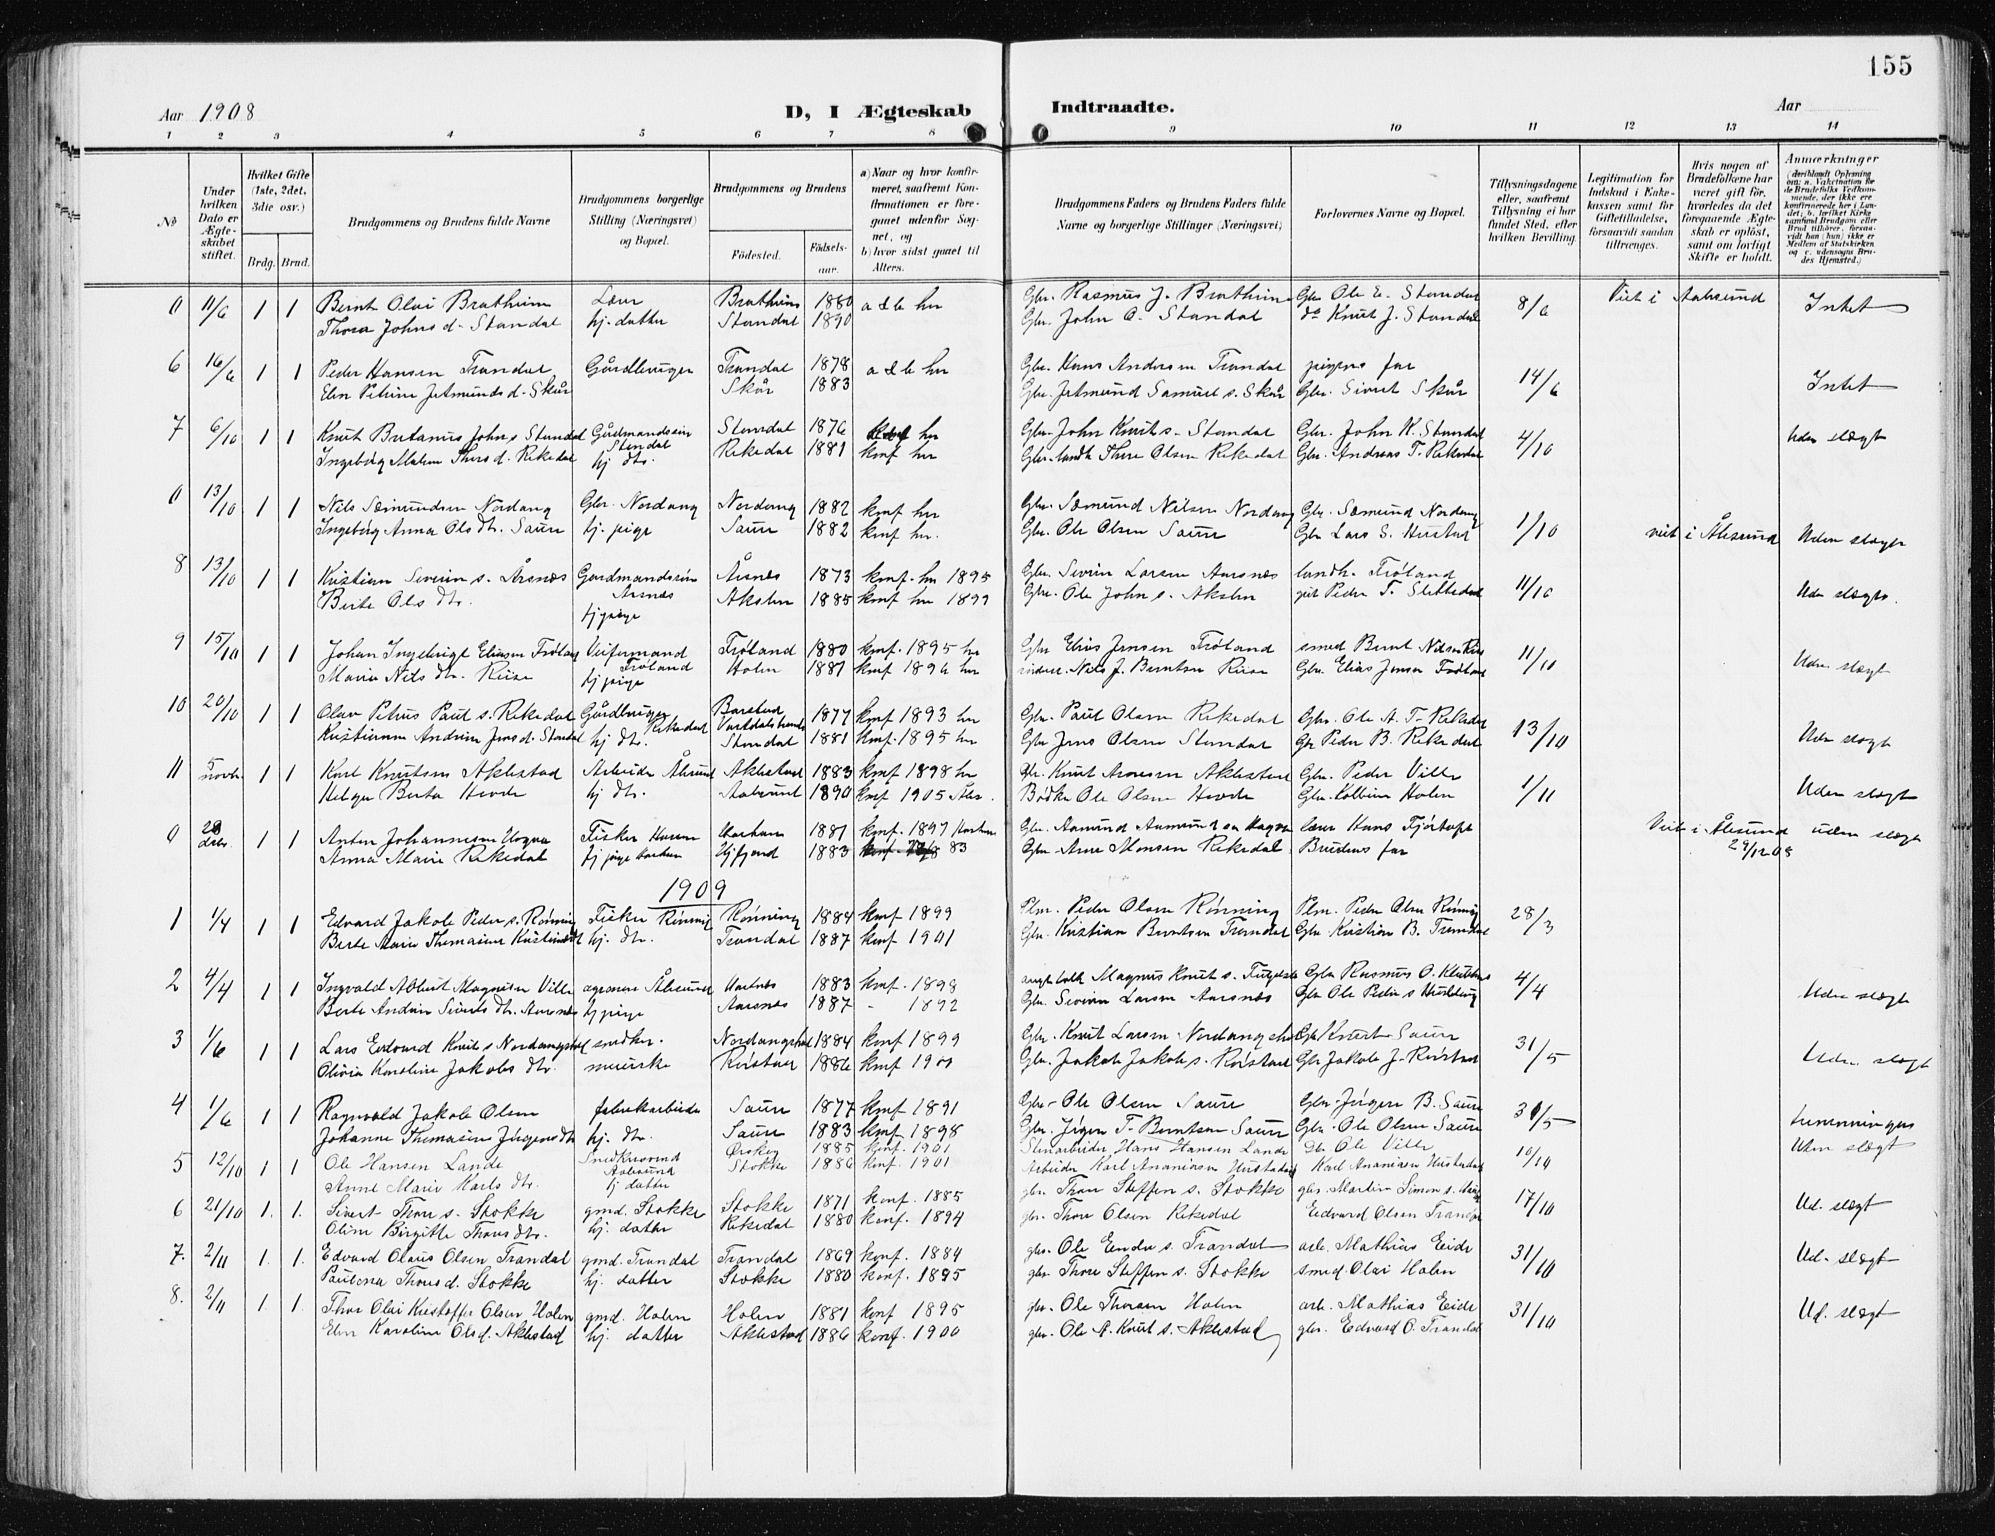 155
Aar 1908
D, I Ægteskab
Indtraadte.
Aar
1 2 3 4 5 6 7 8 9 10 11 12 13 14
No
Under hvilken Dato er Ægteskabet stiftet.
Hvilket Gifte (1ste, 2det, 3die osv.)
Brdg. Brud.
Brudgommens og Brudens fulde Navne
Brudgommens borgerlige Stilling (Næringsvei) og Bopæl.
Brudgommens og Brudens
Fødested. Fødselsaar.
a) Naar og hvor konfirmeret, saafremt Konfirmationen er foreganet udenfor Sognet, og
b) hvor sidst gaaet til Alters.
Brudgommens Faders og Brudens Faders fulde Navne og borgerlige Stillinger (Næringsvei)
Forlovernes Navne og Bopæl.
Tillysningsdagene eller, saafremt Tillysning ei har fundet Sted, efter hvilken Bevilling.
Legitimation for Indskud i Enkekassen samt for Giftetilladelse, forsaavidt saadan tiltrænges.
Hvis nogen af Brudefolkene har været gift før, hvorledes da det foregaaende Ægteskab er opløst, samt om lovligt Skifte er holdt.
Anmærkninger
0 11/6 1 1 Bernt Olai Bratheim Lærer Bratheim 1880 a & b her Gbr. Rasmus J. Bratheim Gbr Ole E. Standal 8/6 Viet i Aalesund Intet
Thora Johns d. Standal hj. datter Standal 1890 Gbr. John O. Standal do Knut J. Standal
6 16/6 1 1 Peder Hansen Trandal Gårdbruger Trandal 1878 a & b her Gbr. Hans Andersen Trandal pigens far 14/6 Intet
Elen Petrine Jetmunds d. Skår Skår 1883 Gbr. Jetmund Samuel s. Skår Gbr. Sivert Skår
7 6/10 1 1 Knut Johns Standal Gårdmandssøn Standal Standal 1876 her Gbr. John Knut s. Standal Gbr. John K. Standal 4/10 Uden slægt
Ingeborg Thors d. Rekedal hj. dtr. Rekedal 1881 konf her Thore Olsen Rekedal Gbr. Andreas T. Rekedal
0 13/10 1 1 Nils Sæmundsen Nordang Gbr. Nordang Nordang 1882 konf her Gbr. Sæmund Nilsen Nordang Gbr. Sæmund Nordang 1/10 viet i Ålesund Uden slægt
Ingeborg Anna Ols dtr. Saure hj. pige Saure 1882 konf her. Gbr. Ole Olsen Saure Gbr Lars S. Hustad
8 13/10 1 1 Kristian Severin s. Årsnæs Gårdmandssøn Aarsnæs Årsnæs 1873 konf. her 1895 Gbr. Severin Larsen Aarsnæs landh. Trøland 11/10 Uden slægt.
Berte Ols dtr. hj pige Akslen 1885 konf her 1899 Gbr. Ole John s. Akslen Peder T. Slettedal
9 15/10 1 1 Johan Ingebrigt Eliasen Trøland Trøland Trøland 1880 konf. 1895 her Gbr Elias Jensen Trøland smed Bernt Nilsen Riise 11/10 Uden slægt
Marie Nils dtr. Riise hj pige Holen 1881 konf 1896 her Nils J. Berntsen Riise Gbr. Elias Jensen Trøland
10 20/10 1 1 Olav Petrus Paul s. Rekedal Gårdbruger Rekedal Barstad Vartdalsstrand 1877 konf 1893 her Gbr. Paul Olsen Rekedal Gbr. Ole A. T. Rekedal 13/10 Uden slægt
Andrine Jens d. Standal hj dtr. Standal 1881 konf. 1895 her Gbr Jens Olsen Standal Gbr Peder B. Rekedal
11 5 novbr. 1 1 Karl Knutsen Aklestad Arbeider Ålesund Aklestad 1883 konf 1898 her Gbr. Knut Arnesen Aklestad Gbr. Peder Ville 1/11 Uden slægt
Helga Berta Hovde hj dtr. Aalesund 1890 konf 1905 Åles. Bødker Ole Olsen Hovde Gbr. Kolbein Holen
0 28 decbr. 1 1 Anton Johannesen Fisker Harham 1881 konf. 1897 Harham Gbr. Aamund lærer Hans Fjørtoft Viet i Ålesund 29/12 08 uden slægt
Anna Marie Rekedal hj. pige Harham 1883 83 Gbr. Arne Monsen Rekedal Brudens far
1909
1 1/4 1 1 Edvard Jakob Peder s. Rønning Fisker Rønning Rønning 1884 konf 1899 Plm. Peder Olsen Rønning Plm. Peder Olsen Rønning 28/3
Berte Marie Thomasine Kristians dtr hj. dtr. Trandal 1887 konf 1901 Gbr. Kristian Berntsen Trandal Gbr. Kristian B. Trandal
2 4/4 1 1 Ingvald Albert Magnusen Ville agronom Ålesund 1883 konf. 1898 Magnus Knut s. Gbr Rasmus O. 4/4 Uden slægt
Berte Andrine Siverts dtr. Aarsnæs hj pige Aarsnæs 1887 - 1892 Gbr. Severin Larsen Aarsnæs Gbr Ole Peder s
3 1/6 1 1 Lars Edvard Knut s Nordangshol snedker. Nordangshol 1884 konf 1899 Gbr. Knut Larsen Nordangshol Gbr Knut Saure 31/5 Uden slægt
Olivia Karoline Jakobs dtr. meierske Rørstad 1886 konf 1900 Gbr. Jakob Jakob s. Rørstad Gbr Jakob J. Rørstad
4 1/6 1 1 Ragnvald Jakob Olsen fabrikarbeider Saure 1877 konf 1891 Gbr. Ole Olsen Saure Gbr. Jørgen B. Saure 31/5
Johanne Thomasine Jørgens dtr hj. dtr. Saure 1883 konf 1898 Gbr. Jørgen T. Berntsen Saure Gbr. Ole Olsen Saure
5 12/10 1 1 Ole Hansen Lande Snedkersvend Aalesund Ørsken 1885 konf 1901 Stenarbeider Hans Hansen Lande Gbr. Ole Ville 10/10 Uden slægt
Anne Marie Karls dtr. hj datter Stokke 1886 konf. 1901 Arbeider Karl Ananiasen Hustadnes Karl Ananiasen Hustadnes
6 21/10 1. 1. Sivert Thore s. Stokke gmd. Stokke Stokke 1871 konf. 1885 gbr. Thore Steffen s. Stokke gbr. Martin Simon s. 17/10 Ud. slægt
Oline Birgitte Thores dtr. hj. datter Rekedal 1880 konf. 1894 gbr. Thore Olsen Rekedal Edvard Olsen Trandal
7. 2/11 1. 1. Edvard Olaus Olsen Trandal gmd. Trandal Trandal 1869 konf. 1884 gbr. Ole Ende s. Trandal arb. Mathias Eide 31/10 Ud. slægt
Paulena Thores d. Stokke hj. datter Stokke 1880 konf. 1895 gbr. Thore Steffen s. Stokke smed. Olai Holen
8. 2/11 1. 1. Thore Olai Kristoffer Olsen Holen gmd. Holen Holen 1881 konf 1895 gbr. Ole Thoresen Holen arb. Mathias Eide 31/10 Ud. slægt
Elen Karoline Ols d. Aklestad hj. datter Aklestad 1886 konf. 1900 gbr. Ole A. Knut s. Aklestad gbr. Edvard O. Trandal